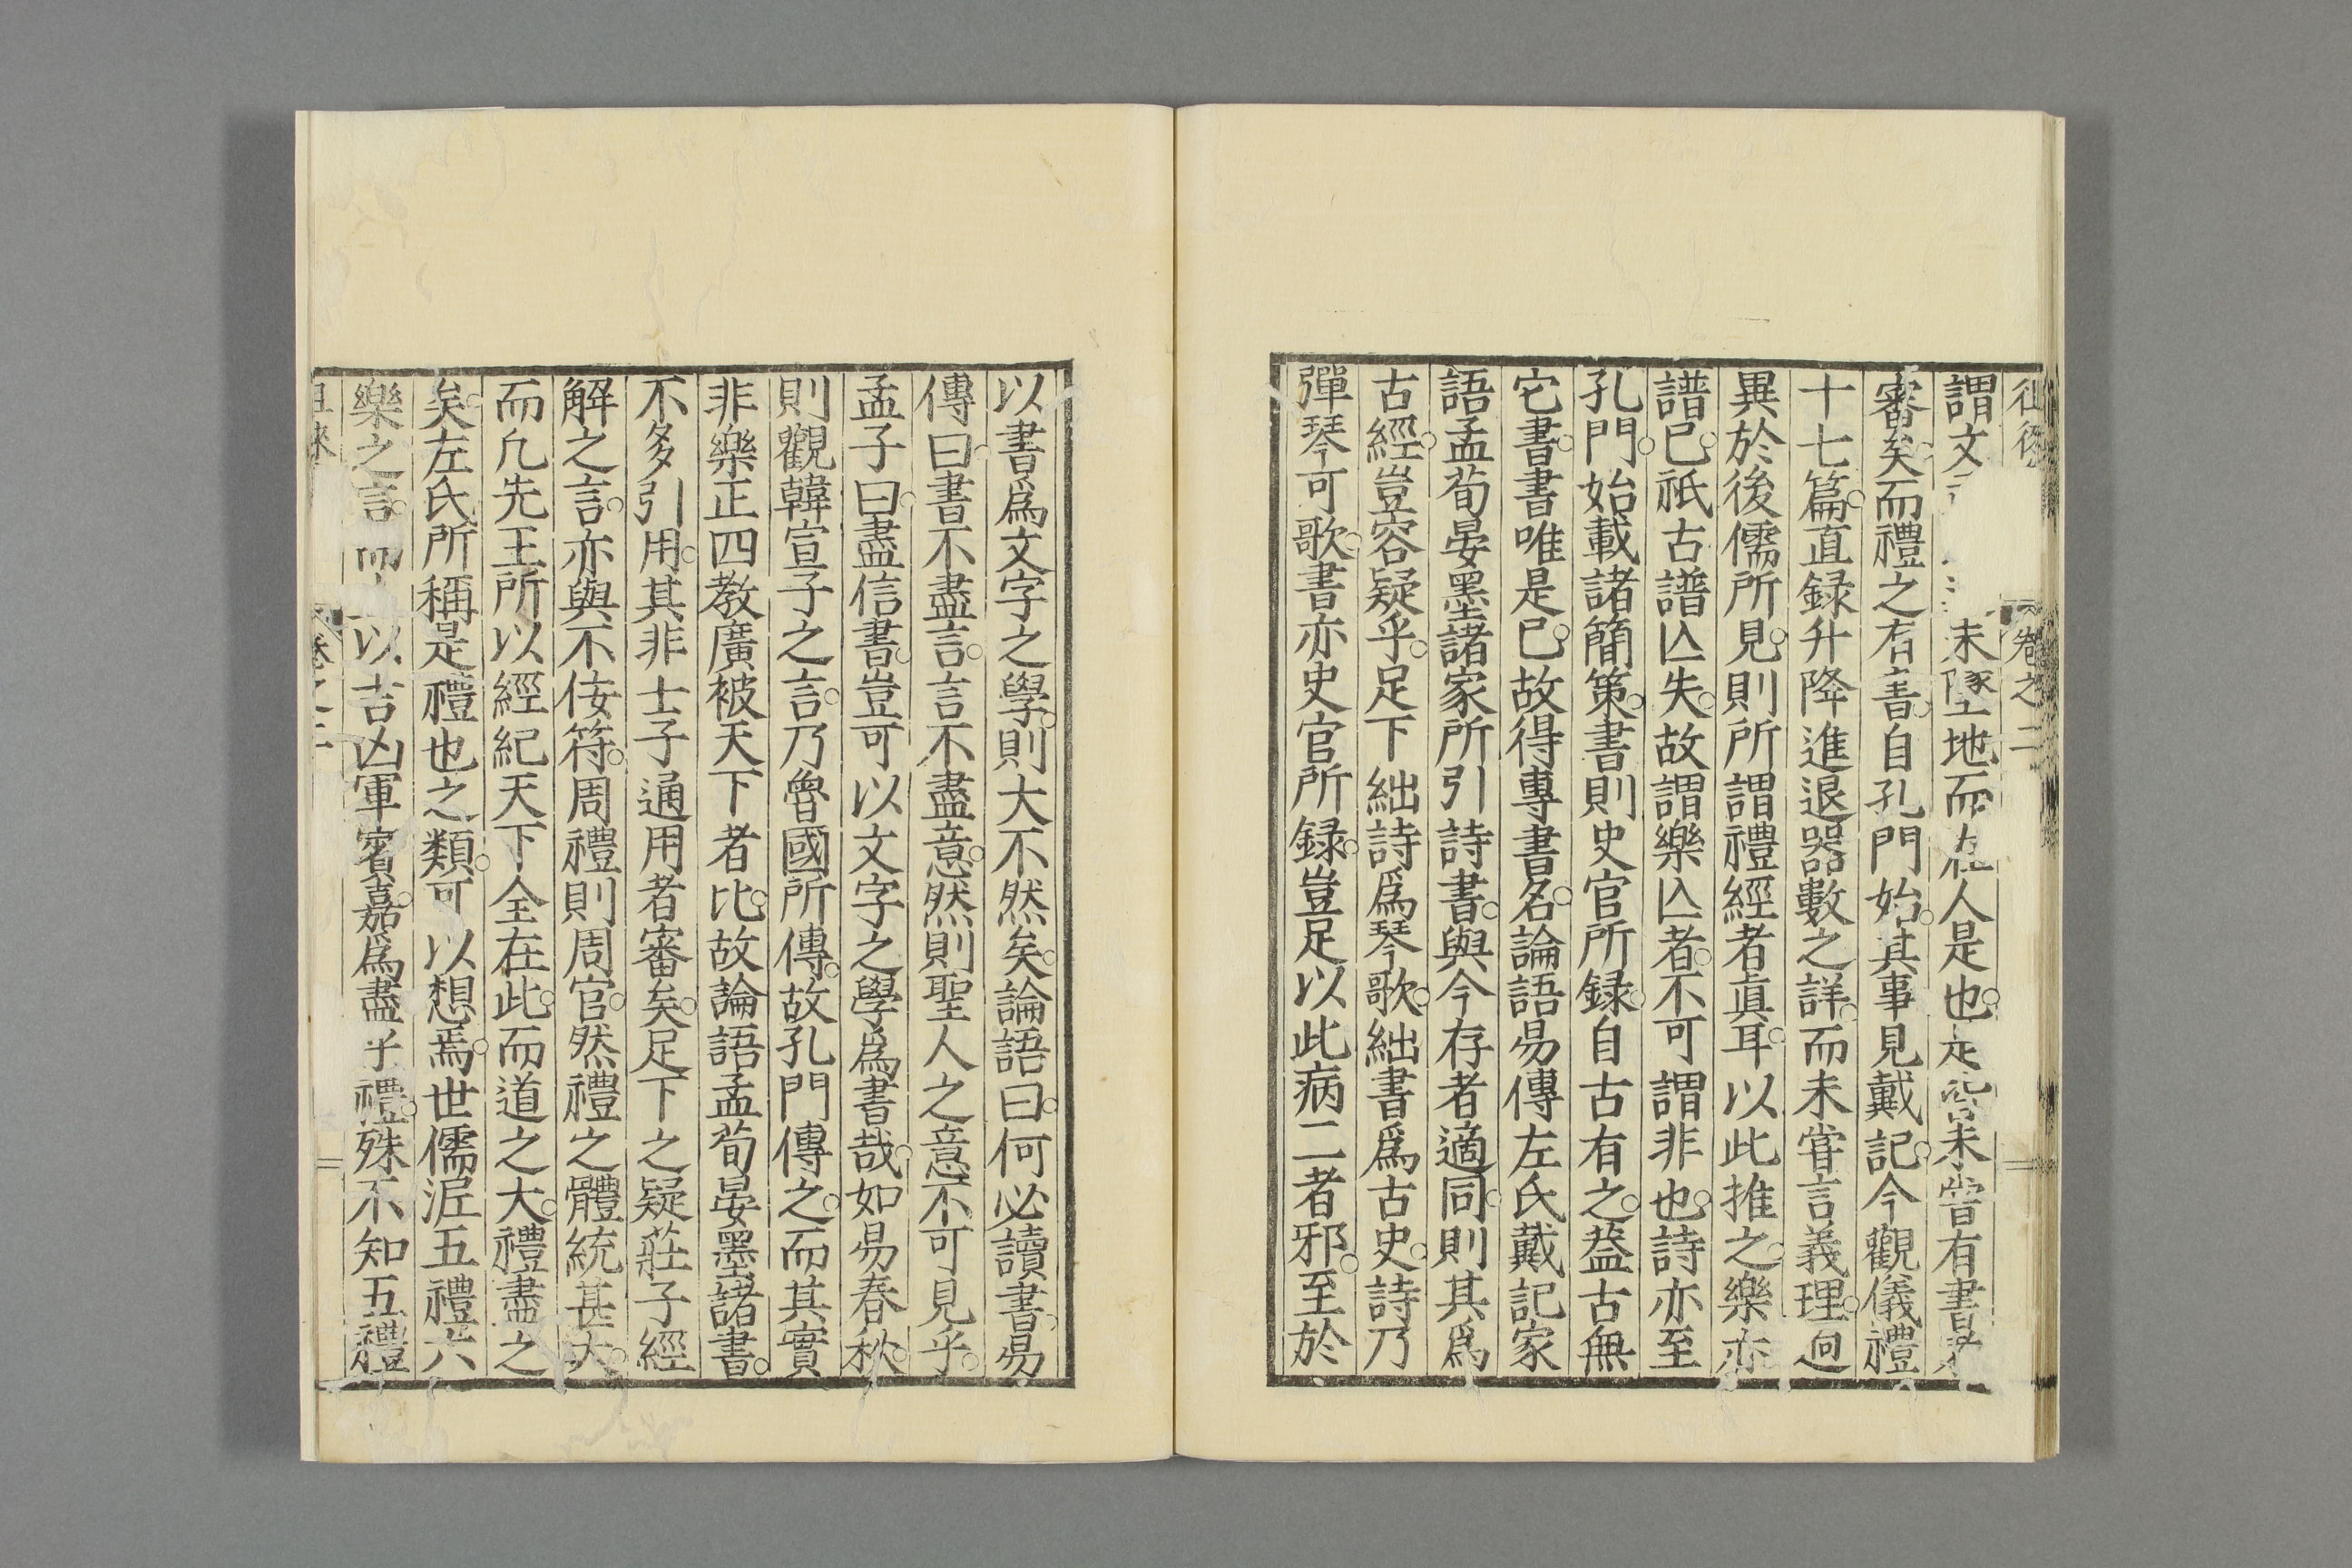 卷之二
謂文未墜地而在人是也未嘗有書
審矣而禮之有書自孔門始其事見戴記今觀儀禮
十七篇直録升降進退器數之詳而未嘗言義理迥
異於後儒所見則所謂禮經者眞耳以此推之樂亦
譜已祇古譜亾失故謂樂亾者不可謂非也詩亦至
孔門始載諸簡策書則史官所録自古有之葢古無
它書書唯是已故得專書名論語易傳左氏戴記家
語孟荀晏墨諸家所引詩書與今存者適同則其爲
古經豈容疑乎足下絀詩爲琴歌絀書爲古史詩乃
彈琴可歌書亦史官所録豈足以此病二者邪至於
以書爲文字之學則大不然矣論語曰何必讀書易
傳曰書不盡言言不盡意然則聖人之意不可見乎
孟子曰盡信書豈可以文字之學爲書哉如易春秋
則觀韓宣子之言乃魯國所傳故孔門傳之而其實
非樂正四教廣被天下者比故論語孟荀晏墨諸書
不多引用其非士子通用者審矣足下之疑莊子經
解之言亦與不佞符周禮則周官然禮之體統甚大
而凢先王所以經紀天下全在此而道之大禮盡之
矣左氏所稱是禮也之類可以想焉世儒泥五禮六
樂之言以吉凶軍賓嘉爲盡乎禮殊不知五禮
卷之二